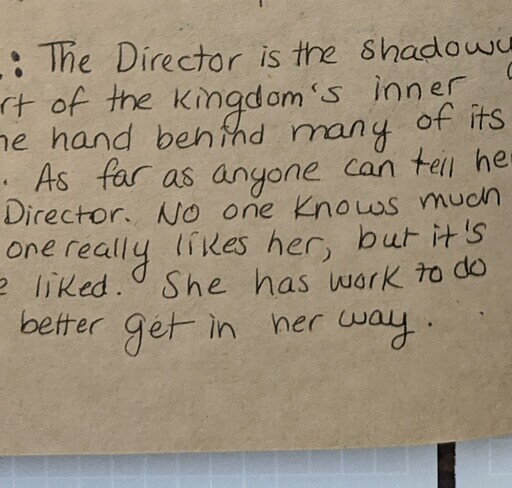 : The Director is the shadowy
rt of the kingdom's inner
he hand behind many of its
. As far as anyone can tell he
Director. No one knows much
one really likes her, but it's
e liked. She has work to do
better get in her way.